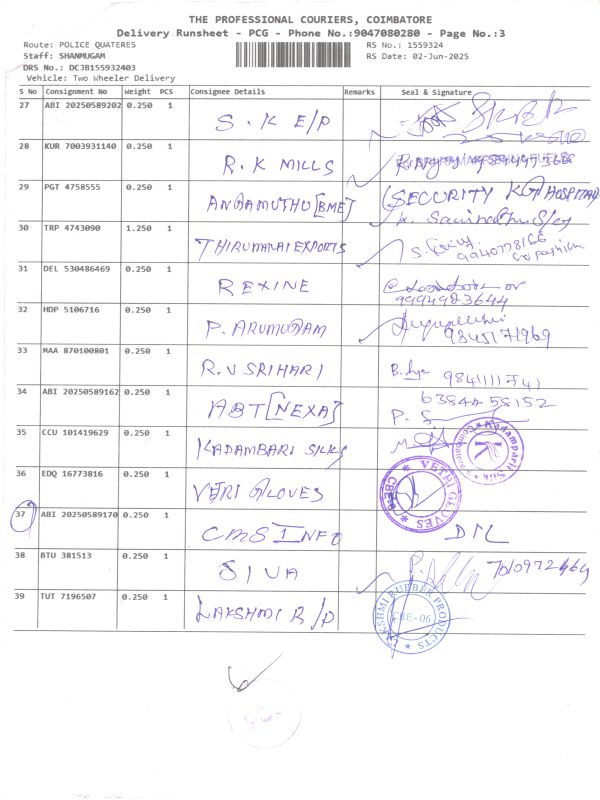 THE PROFESSIONAL COURIERS, COIMBATORE
Delivery Runsheet - PCG - Phone No.:9047080280 - Page No.:3
Route: POLICE QUATERES RS No.: 1559324
Staff: SHANMUGAM RS Date: 02-Jun-2025
DRS No.: DCJB155932403
Vehicle: Two Wheeler Delivery
S No Consignment No Weight PCS Consignee Details Remarks Seal & Signature
27 ABI 20250589202 0.250 1 S.K E/P
28 KUR 7003931140 0.250 1 R.K MILLS
29 PGT 4758555 0.250 1 ANGAMUTHU [BME] SECURITY KGA HOSPITAL
30 TRP 4743090 1.250 1 THIRUMALAI EXPORTS
9940778166
31 DEL 530486469 0.250 1 REXINE
9994923644
32 HDP 5106716 0.250 1 P. ARUMUGAM
9345171969
33 MAA 870100801 0.250 1 R.V SRIHARI
34 ABI 20250589162 0.250 1 ABT [NEXA] 63844 58152
35 CCU 101419629 0.250 1 KADAMBARI SILKS
36 EDQ 16773816 0.250 1 VETRI GLOVES VETRI GLOVES CBE-6
37 ABI 20250589170 0.250 1 CMS INFO DIL
38 BTU 381513 0.250 1 SIVA
39 TUT 7196507 0.250 1 LAKSHMI R/P LAKSHMI RUBBER PRODUCTS CBE-06